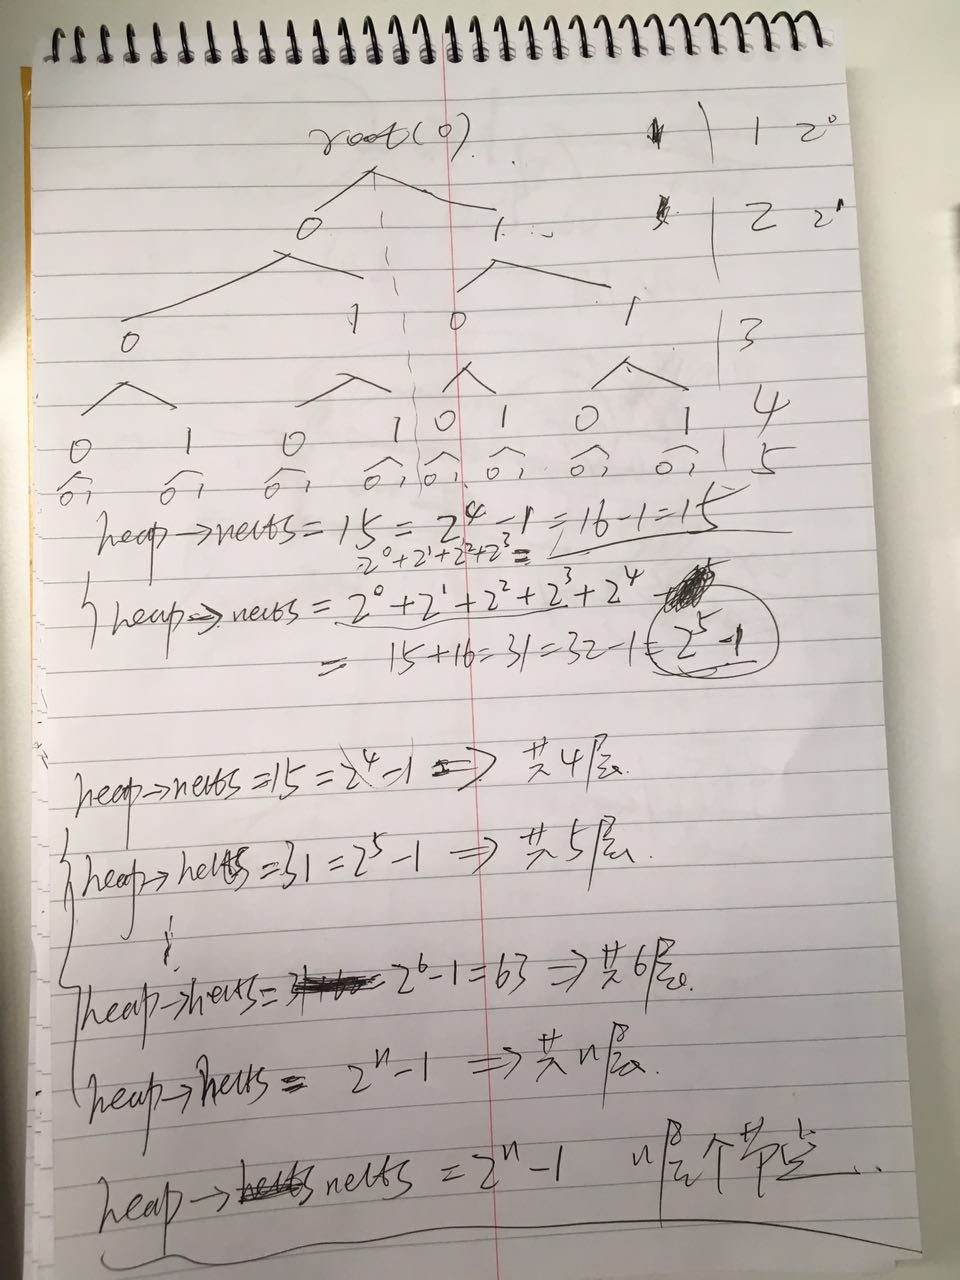 root(0) 1 2⁰
0 1 2 2¹
0 1 0 1 3
0 1 0 1 0 1 0 1 4
0 1 0 1 0 1 0 1 0 1 0 1 0 1 0 1 5
heap→nelts = 15 = 2⁴ - 1 = 16 - 1 = 15
2⁰+2¹+2²+2³ =
heap→nelts = 2⁰ + 2¹ + 2² + 2³ + 2⁴
= 15 + 16 = 31 = 32 - 1 = 2⁵ - 1
heap→nelts = 15 = 2⁴ - 1 ⇒ 共4层.
heap→nelts = 31 = 2⁵ - 1 ⇒ 共5层.
heap→nelts = 2⁶ - 1 = 63 ⇒ 共6层.
heap→nelts = 2ⁿ - 1 ⇒ 共n层.
heap→nelts = 2ⁿ - 1 n层个节点.